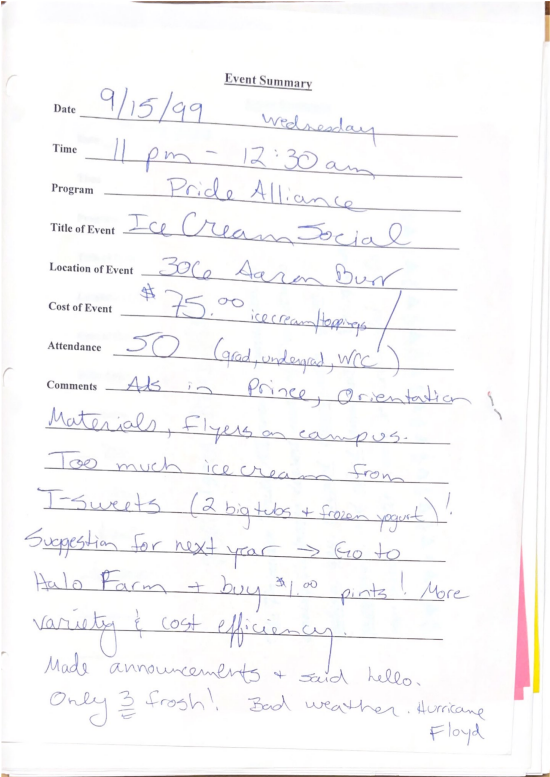 Event Summary
Date 9/15/99 Wednesday
Time 11 pm - 12:30 am
Program Pride Alliance
Title of Event Ice Cream Social
Location of Event 306 Aaron Burr
Cost of Event $75.00 icecream/toppings
Attendance 50 (grad, undergrad, WCC)
Comments Ads in Prince, Orientation
Materials, Flyers on campus.
Too much ice cream from
T-Sweets (2 big tubs + frozen yogurt)!
Suggestion for next year → Go to
Halo Farm + buy $1.00 pints! More
variety & cost efficiency.
Made announcements + said hello.
Only 3 frosh! Bad weather. Hurricane
Floyd